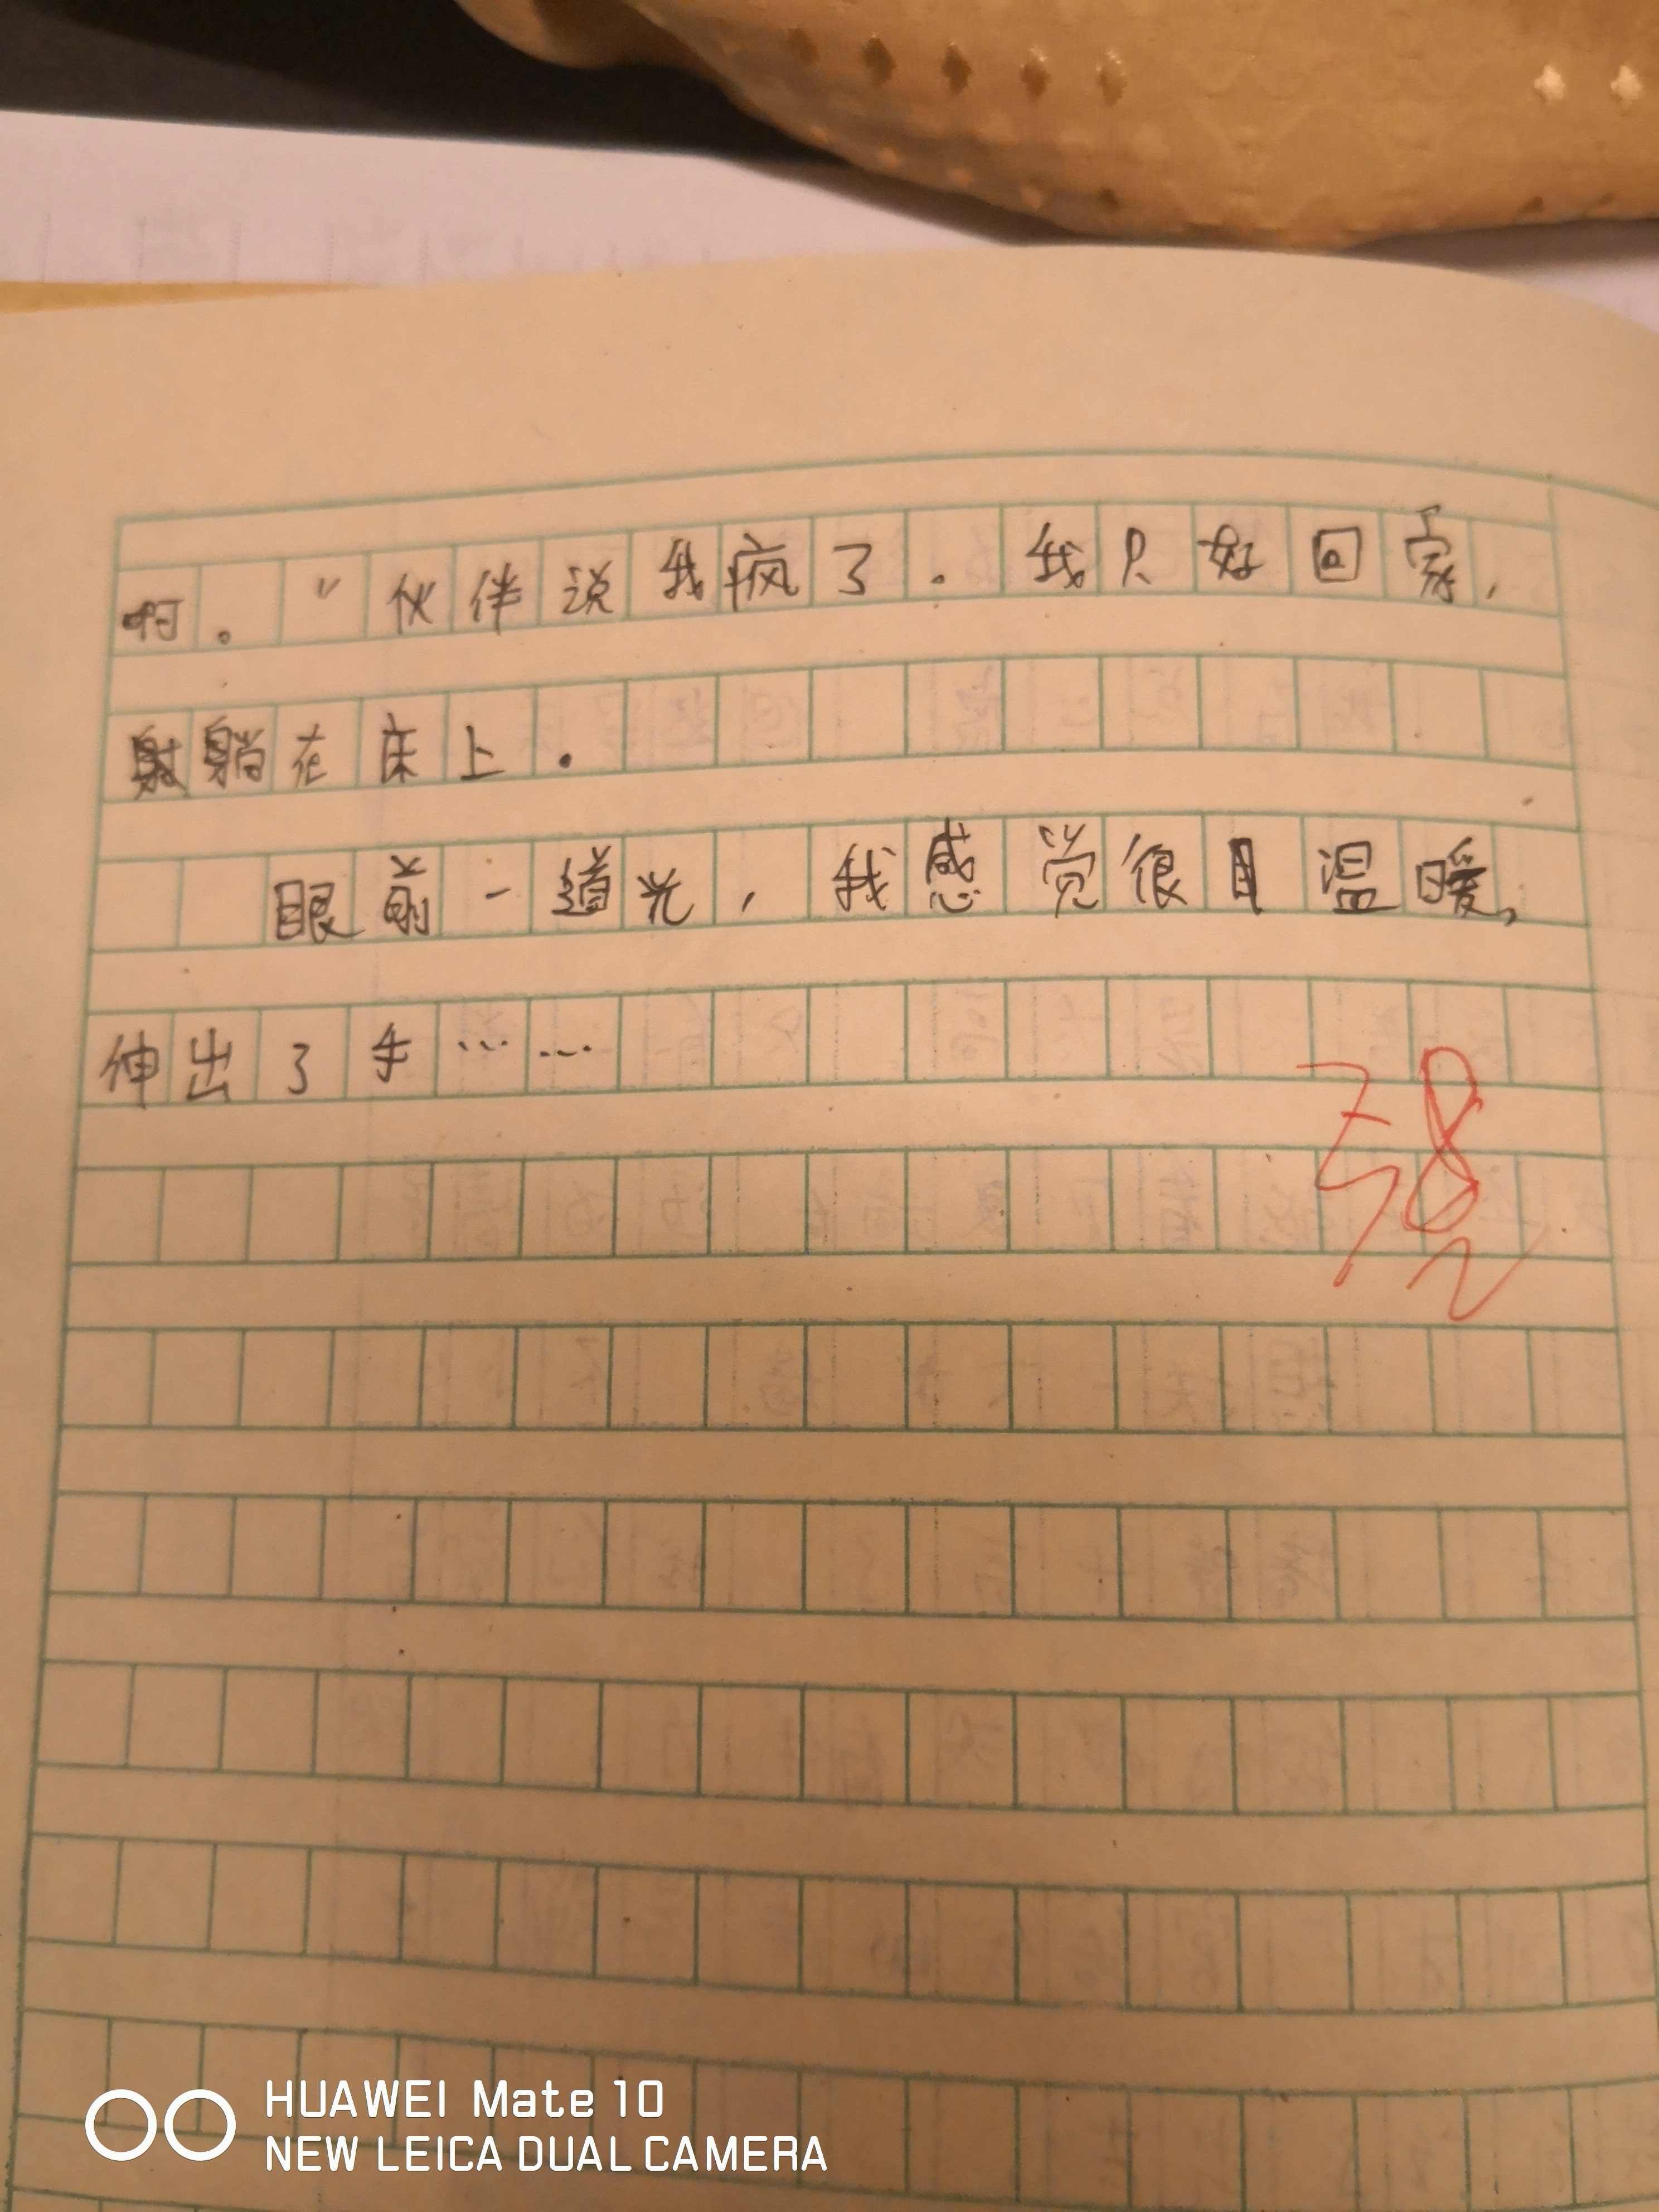 啊。”伙伴说我疯了。我只好回家，
躺在床上。
眼前一道光，我感觉很温暖，
伸出了手……
38
HUAWEI Mate 10
NEW LEICA DUAL CAMERA